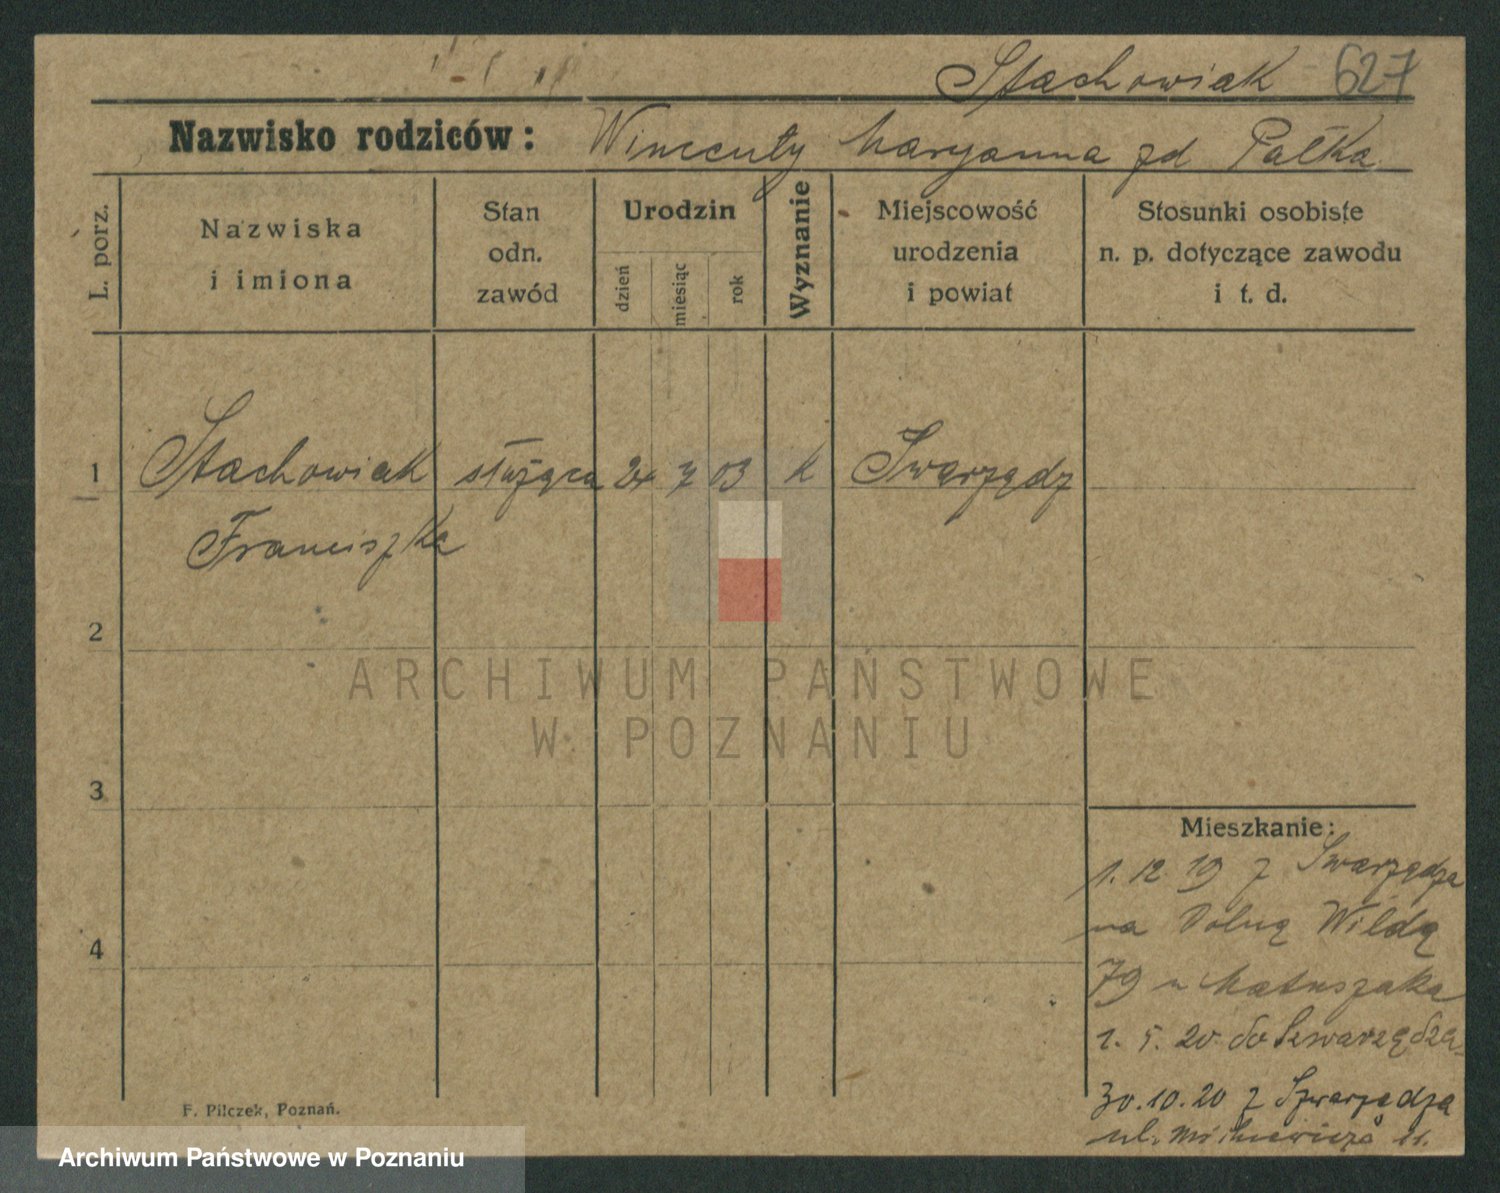 Stachowiak 627
Nazwisko rodziców: Wincenty Maryanna zd Pałka
L. porz.
Nazwiska
i imiona
Stan
odn.
zawód
Urodzin
dzień
miesiąc
rok
Wyznanie
Miejscowość
urodzenia
i powiat
Stosunki osobiste
n. p. dotyczące zawodu
i t. d.
1 Stachowiak służąca 24 7 03 k Swarzędz
Franciszka
2
ARCHIWUM PAŃSTWOWE
W POZNANIU
3
Mieszkanie:
1. 12. 19 z Swarzędza
na Dolną Wildą
4
79 u Matuszaka
1. 5. 20 do Szwarzędza
30. 10. 20 z Szwarzędza
ul.
F. Pilczek, Poznań.
Archiwum Państwowe w Poznaniu